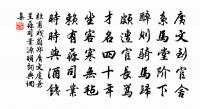 廣文到官舍
系馬堂階下
醉則騎馬歸
頗遭官長罵
才名四十年
坐客寒無氈
賴有蘇司業
時時與酒錢
杜甫戲簡鄭廣文虔兼
呈蘇司業源明詞典網
集